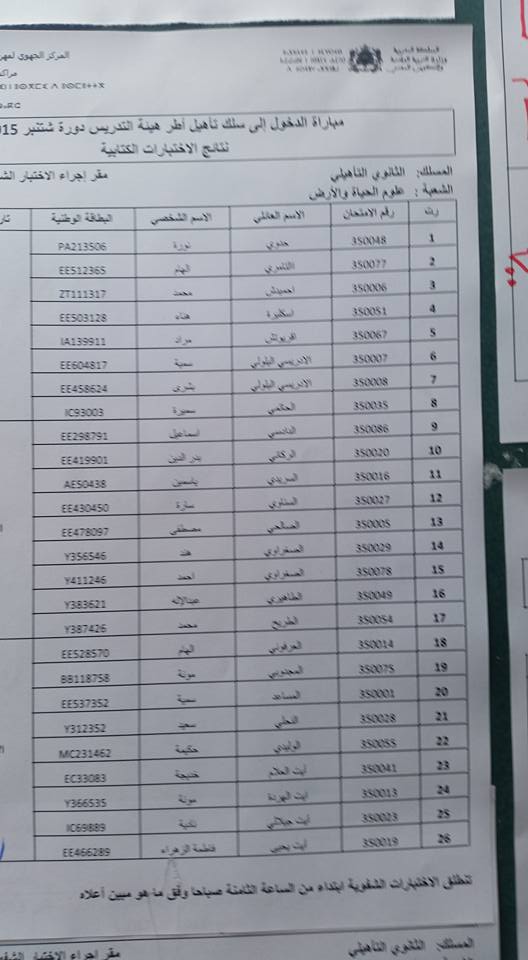 المملكة المغربية
المركز الجهوي لمهن
مباراة الدخول إلى سلك تأهيل أطر هيئة التدريس دورة شتنبر 15
نتائج الاختبارات الكتابية
المسلك: الثانوي التأهيلي مقر إجراء الاختبار
الشعبة: علوم الحياة والأرض
رت رقم الامتحان الاسم العائلي الاسم الشخصي البطاقة الوطنية
1 350048 جدوي نورة PA213506
2 350077 الهام EE512365
3 350006 احميدش محمد ZT111317
4 350051 اسكليرة هناء EE503128
5 350067 مراد IA139911
6 350007 الادريسي البلولي سمية EE604817
7 350008 الادريسي البلولي بشرى EE458624
8 350035 الحاتمي سميرة IC93003
9 350086 اسماعيل EE298791
10 350020 الركاني بدر الدين EE419901
11 350016 السريدي ياسمين AE50438
12 350027 السناوي سارة EE430450
13 350005 الصالحي مصطفى EE478097
14 350029 الصغراوي هند Y356546
15 350078 الصغراوي احمد Y411246
16 350049 الطاهيري عبدالإله Y383621
17 350054 الطريح محمد Y387426
18 350014 العرفوني الهام EE528570
19 350075 المجدوبي مونة BB118758
20 350001 المساعد سمية EE537352
21 350028 النحلي سعيد Y312352
22 350055 الوليدي حكيمة MC231462
23 350041 أيت العلام خديجة EC33083
24 350013 ايت الهردة مونة Y366535
25 350023 أيت جيلالي نادية IC69889
26 350019 أيت يحيى فاطمة الزهراء EE466289
تنطلق الاختبارات الشفوية ابتداء من الساعة الثامنة صباحا وفق ما هو مبين أعلاه
المسلك: الثانوي التأهيلي مقر إجراء الاختبار